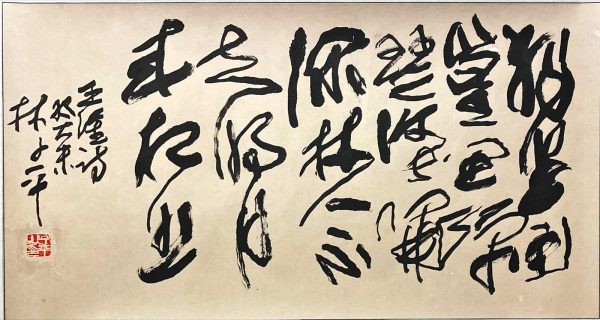 独坐幽
篁里弹
琴复长啸
深林人不
知明月
来相照
王维诗
林子平